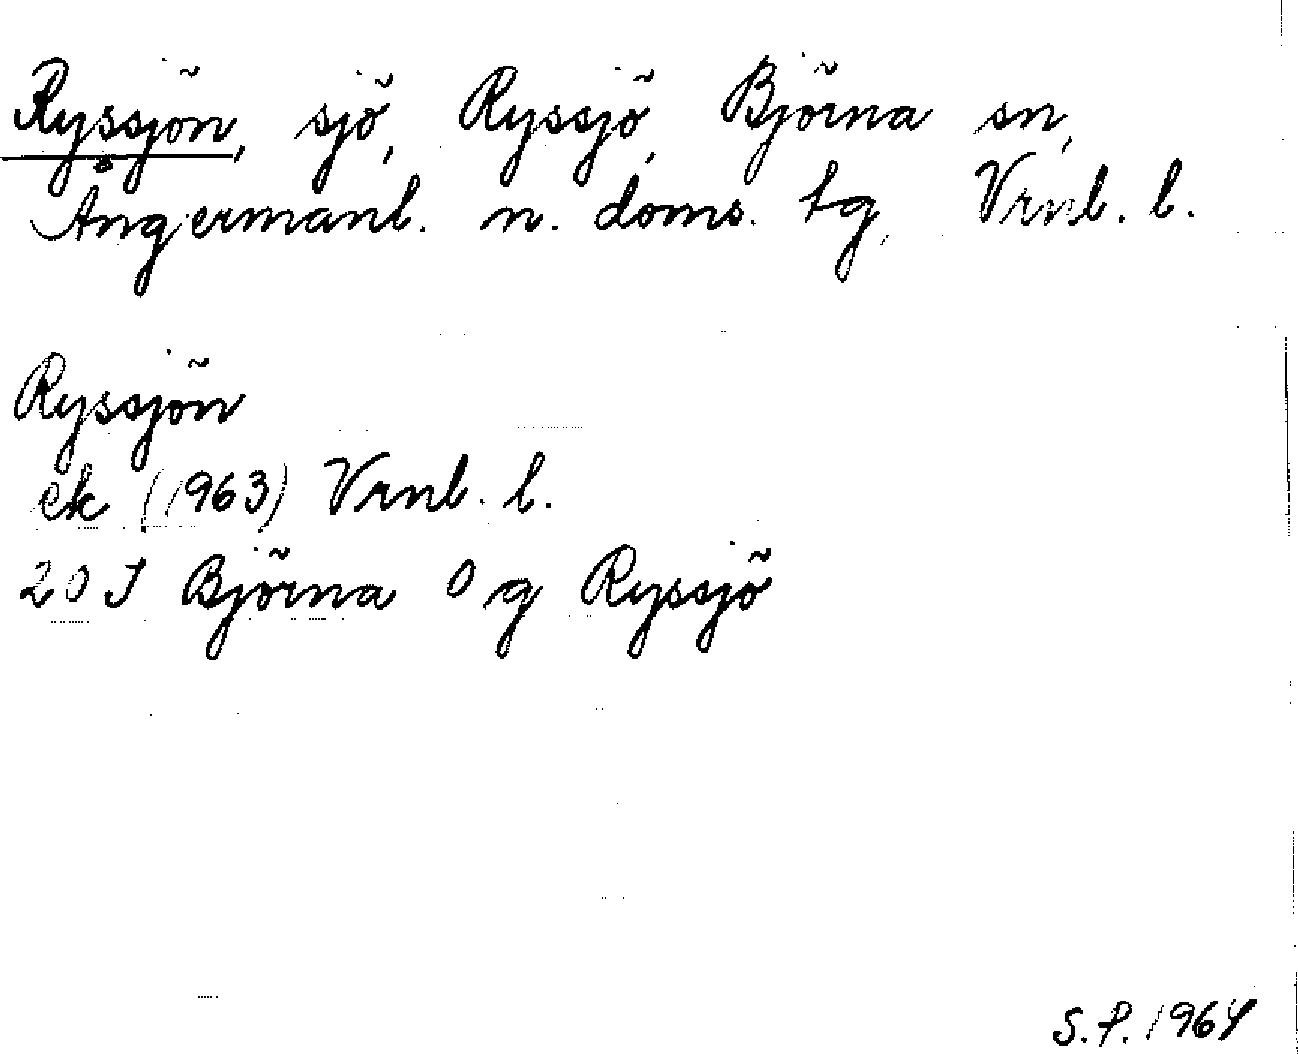 Ryssjön, sjö, Ryssjö, Björna sn,
Ångermanl. n. doms. tg, Vrnl. l.
Ryssjön
ek (1963) Vrnl. l.
20 J Björna 0 g Ryssjö
S.P. 1964